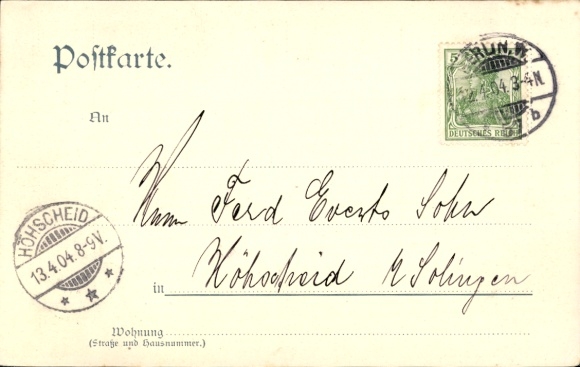 Postkarte.
5
BERLIN.W.
12.4.04.3-4N.
b
DEUTSCHES REICH
An
Ferd Everts Sohn
HÖHSCHEID
13.4.04.8-9V.
in Höhscheid Solingen
Wohnung
(Straße und Hausnummer.)